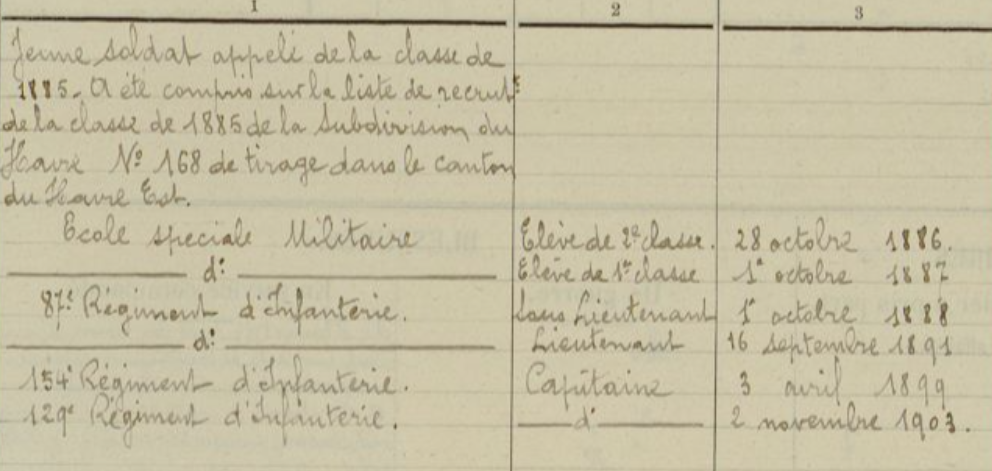 1 2 3
Jeune soldat appelé de la classe de
1885. A été compris sur la liste de recrutt
de la classe de 1885 de la Subdivision du
Havre Nº 168 de tirage dans le canton
du Havre Est.
Ecole speciale Militaire Elève de 2e classe. 28 octobre 1886.
dº Elève de 1re classe 1er octobre 1887
87e Régiment d'Infanterie. Sous Lieutenant 1er octobre 1888
dº Lieutenant 16 septembre 1891
154e Régiment d'Infanterie. Capitaine 3 avril 1899
129e Régiment d'Infanterie. dº 2 novembre 1903.